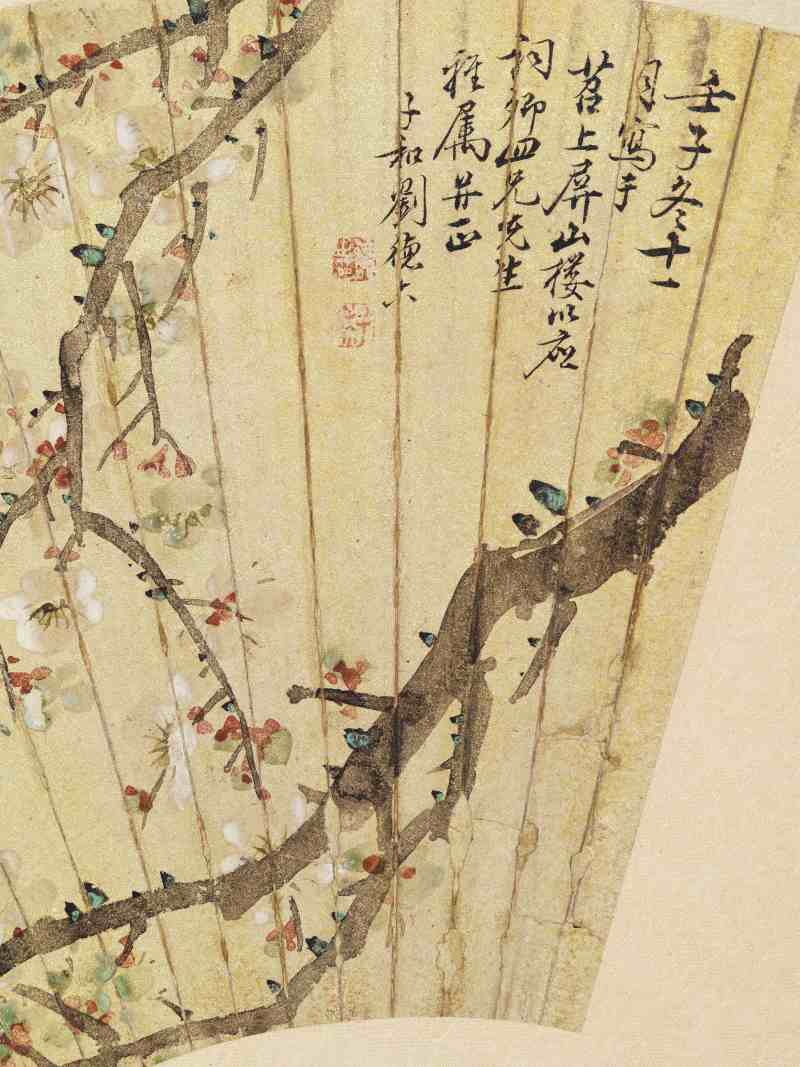 壬子冬十一
月寫于
苕上屏山樓以應
詞卿四兄先生
雅属并正
子和劉德六